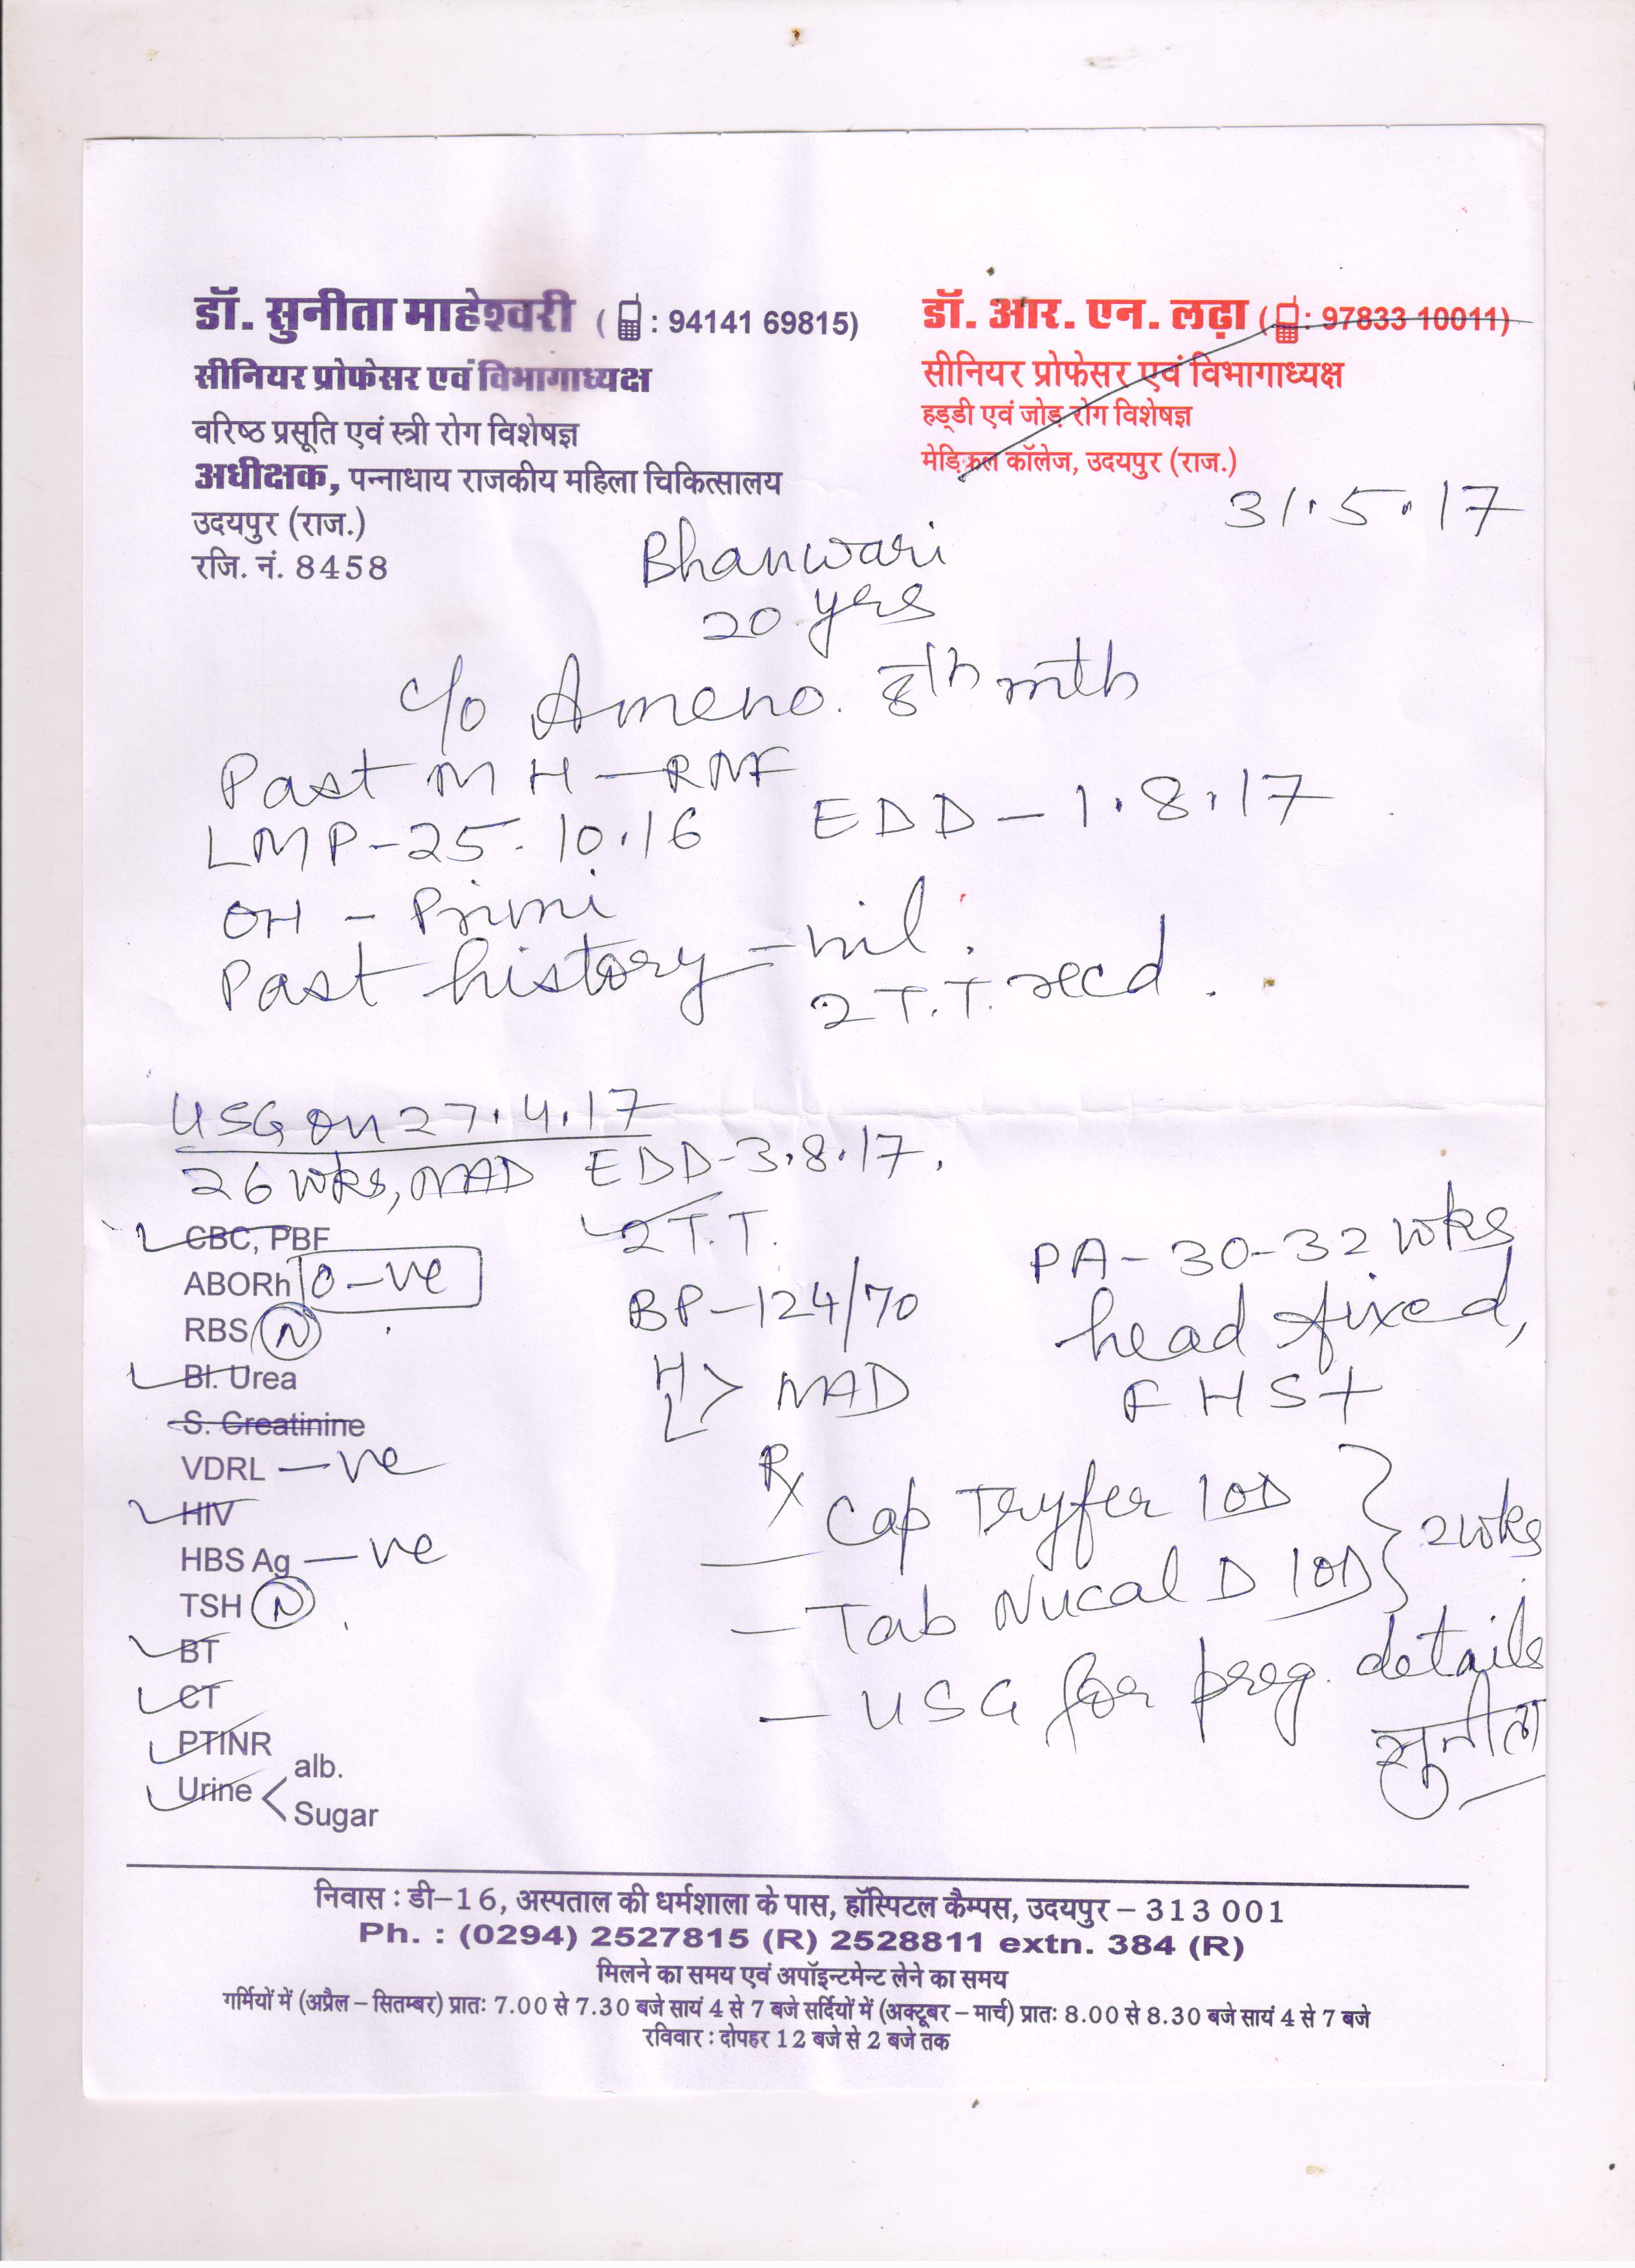 डॉ. सुनीता माहेश्वरी ( : 94141 69815)
सीनियर प्रोफेसर एवं विभागाध्यक्ष
वरिष्ठ प्रसूति एवं स्त्री रोग विशेषज्ञ
अधीक्षक, पन्नाधाय राजकीय महिला चिकित्सालय
उदयपुर (राज.)
रजि. नं. 8458
डॉ. आर. एन. लढ़ा ( : 97833 10011)
सीनियर प्रोफेसर एवं विभागाध्यक्ष
हड्डी एवं जोड़ रोग विशेषज्ञ
मेडिकल कॉलेज, उदयपुर (राज.)
31.5.17
Bhanwari
20 yrs
c/o Ameno. 8th mth
Past M H - RMF
LMP - 25.10.16 EDD - 1.8.17
OH - Primi
Past history - nil.
2 T.T. recd.
USG on 27.4.17
26 wks, NAD EDD - 3.8.17.
CBC, PBF
ABORh O -ve
RBS N
Bl. Urea
S. Creatinine
VDRL -ve
HIV
HBS Ag -ve
TSH N
BT
CT
PTINR
Urine < alb.
Sugar
2 T.T.
BP - 124/70
H
L > NAD
PA - 30-32 wks
head fixed,
FHS+
Rx
Cap Tryfer 1OD
- Tab Nucal D 1OD } 2wks
- USG for preg. details
सुनीता
निवास : डी-16, अस्पताल की धर्मशाला के पास, हॉस्पिटल कैम्पस, उदयपुर - 313 001
Ph. : (0294) 2527815 (R) 2528811 extn. 384 (R)
मिलने का समय एवं अपॉइन्टमेन्ट लेने का समय
गर्मियों में (अप्रैल - सितम्बर) प्रातः 7.00 से 7.30 बजे सायं 4 से 7 बजे सर्दियों में (अक्टूबर - मार्च) प्रातः 8.00 से 8.30 बजे सायं 4 से 7 बजे
रविवार : दोपहर 12 बजे से 2 बजे तक